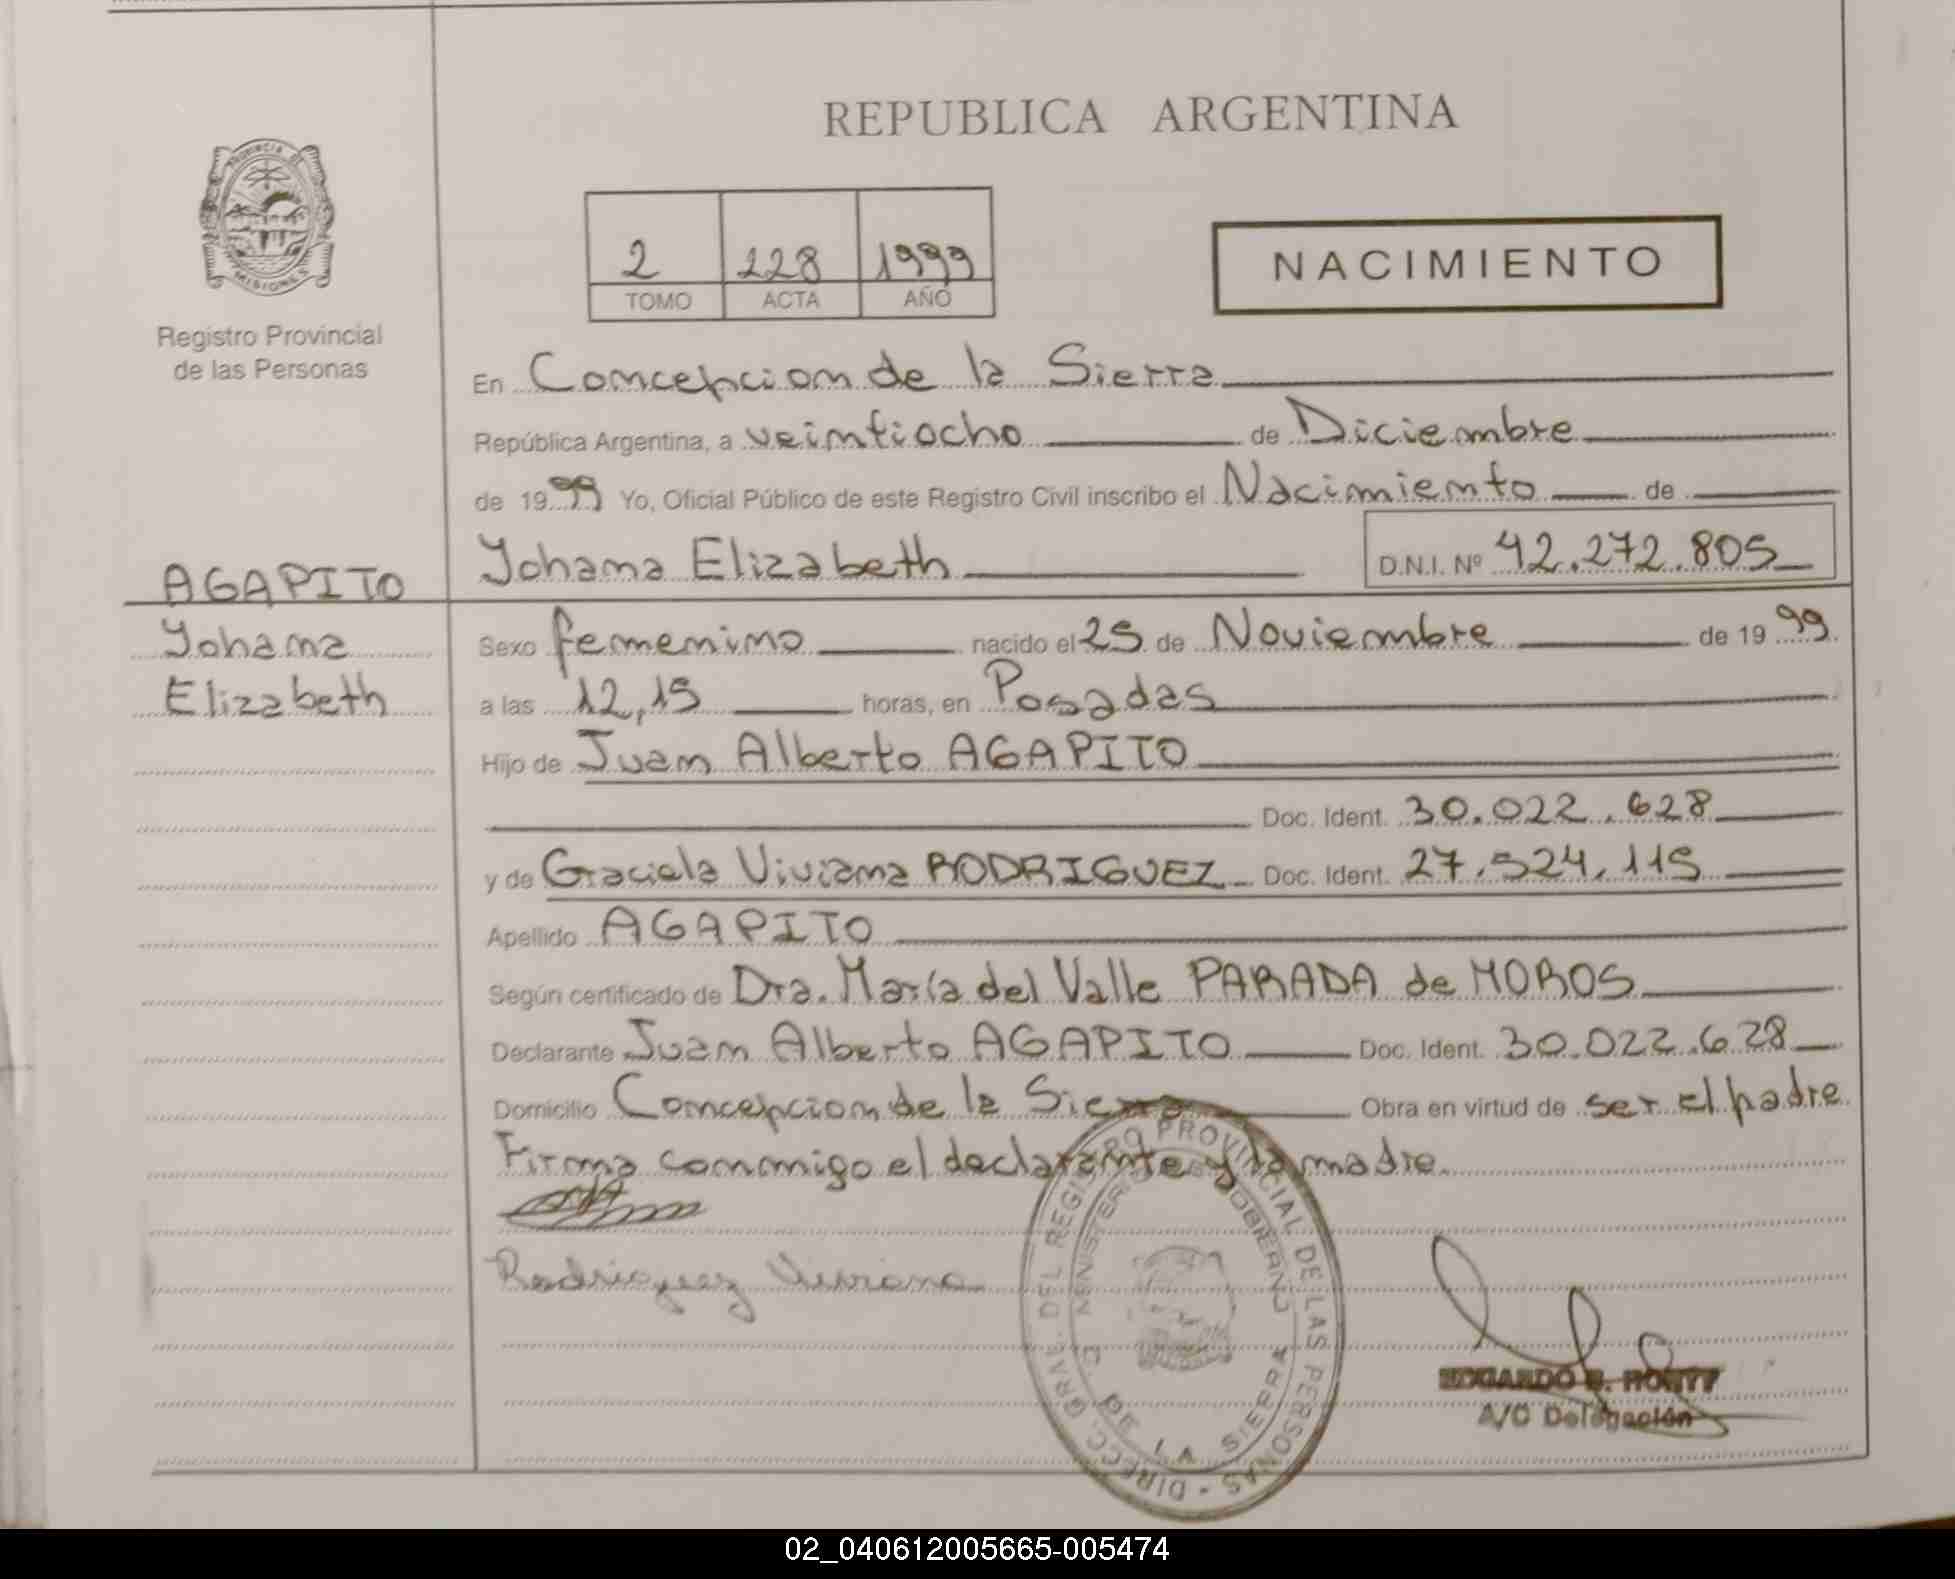 REPUBLICA ARGENTINA
PROVINCIA DE
MISIONES
Registro Provincial
de las Personas
2 228 1999
TOMO ACTA AÑO
NACIMIENTO
En Concepcion de la Sierra
República Argentina, a veintiocho de Diciembre
de 1999 Yo, Oficial Público de este Registro Civil inscribo el Nacimiento de
Yohana Elizabeth D.N.I. Nº 42.272.805
AGAPITO
Yohana
Elizabeth
Sexo femenino nacido el 25 de Noviembre de 1999
a las 12,15 horas, en Posadas
Hijo de Juan Alberto AGAPITO
Doc. Ident. 30.022.628
y de Graciela Viviana RODRIGUEZ Doc. Ident. 27.524.115
Apellido AGAPITO
Según certificado de Dra. María del Valle PARADA de MOROS
Declarante Juan Alberto AGAPITO Doc. Ident. 30.022.628
Domicilio Concepcion de la Sierra Obra en virtud de ser el padre
Firma conmigo el declarante y la madre
Rodriguez Viviana
DIRECC. GRAL. DEL REGISTRO PROVINCIAL DE LAS PERSONAS
MINISTERIO DE GOBIERNO
C. DE LA SIERRA
EDGARDO
A/C Delegación
02_040612005665-005474